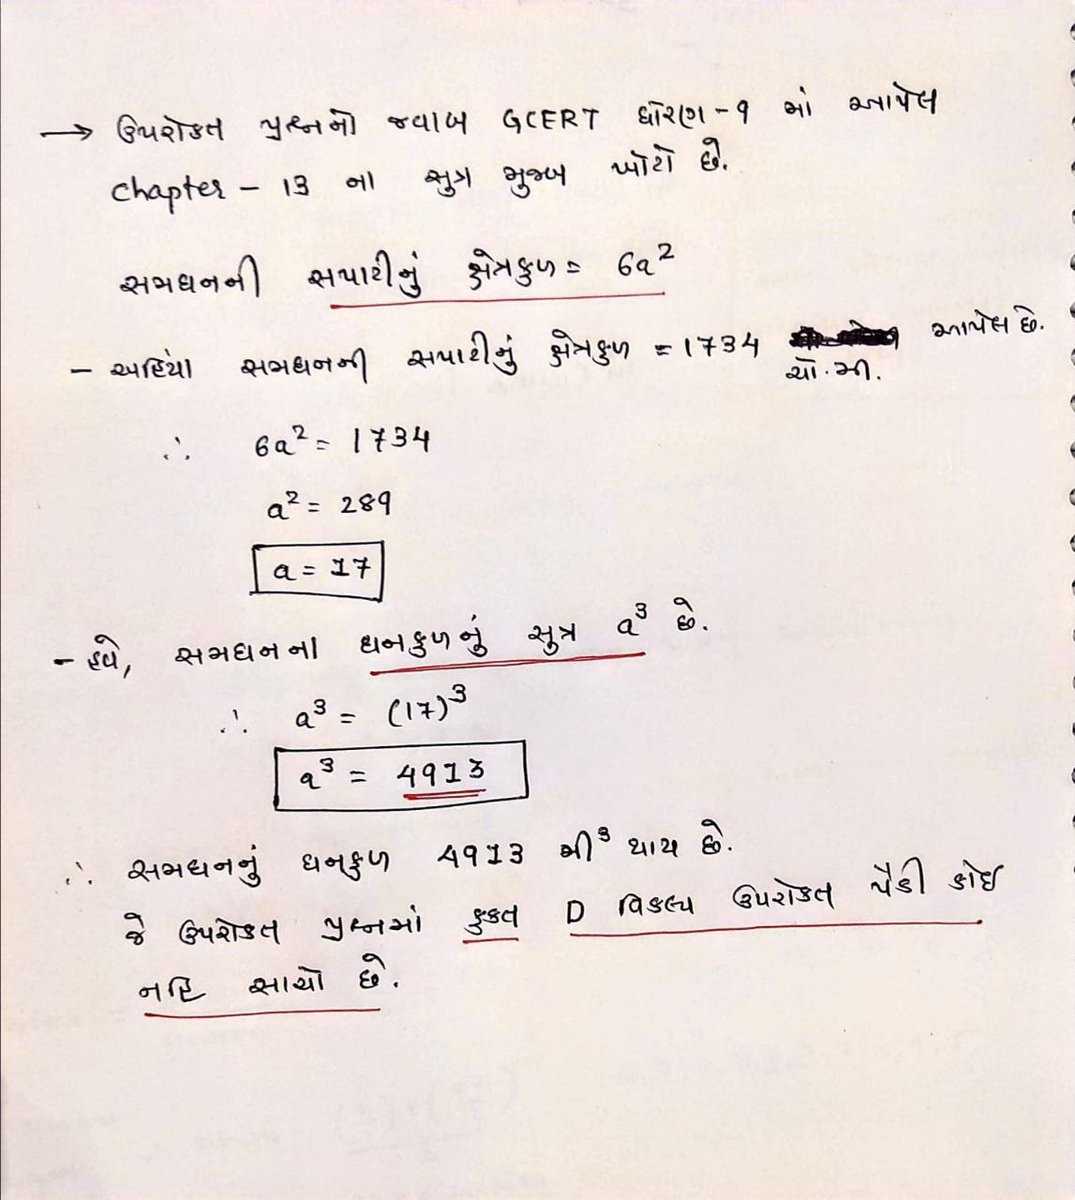 → ઉપરોક્ત પ્રશ્નનો જવાબ GCERT ધોરણ - ૧ માં આપેલ
chapter - 13 ના સુત્ર મુજબ ખોટો છે.
સમઘનની સપાટીનું ક્ષેત્રફળ = 6a²
- અહિંયા સમઘનની સપાટીનું ક્ષેત્રફળ = 1734 આપેલ છે.
ચો.મી.
∴ 6a² = 1734
a² = 289
a = 17
- હવે, સમઘનના ઘનફળનું સુત્ર a³ છે.
∴ a³ = (17)³
a³ = 4913
∴ સમઘનનું ઘનફળ 4913 મી³ થાય છે.
જે ઉપરોક્ત પ્રશ્નમાં ફક્ત D વિકલ્પ ઉપરોક્ત પૈકી કોઈ
નહિ સાચો છે.